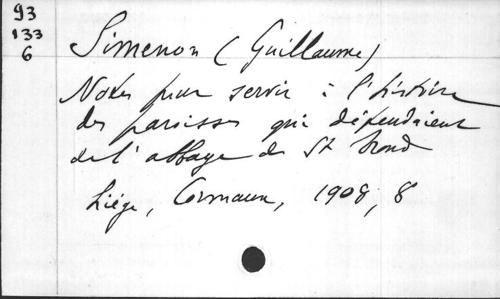 93
133
6
Simenon (Guillaume)
Notes pour servir à l'histoire
des paroisses qui dépendaient
de l'abbaye de St Trond
Liége, Cormaux, 1908, 8